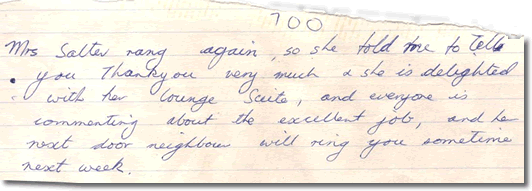 700
Mrs Salter rang again, so she told me to tell
you Thankyou very much & she is delighted
with her lounge Suite, and everyone is
commenting about the excellent job, and her
next door neighbour will ring you sometime
next week.